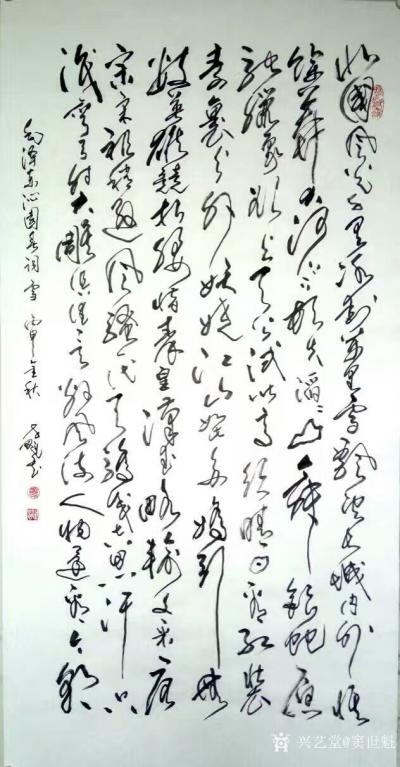 北國风光千里冰封萬里雪飘望長城内外惟
馀莽莽大河上下顿失滔滔山舞银蛇原
驰蠟象欲与天公试比高须晴日看红装
素裹分外妖娆江山如此多嬌引無
数英雄競折腰惜秦皇漢武略輸文采唐
宗宋祖稍逊风骚一代天骄成吉思汗只
识弯弓射大雕俱往矣数风流人物還看今朝
毛泽东沁園春词雪 丙申金秋
兴艺堂@窦世魁